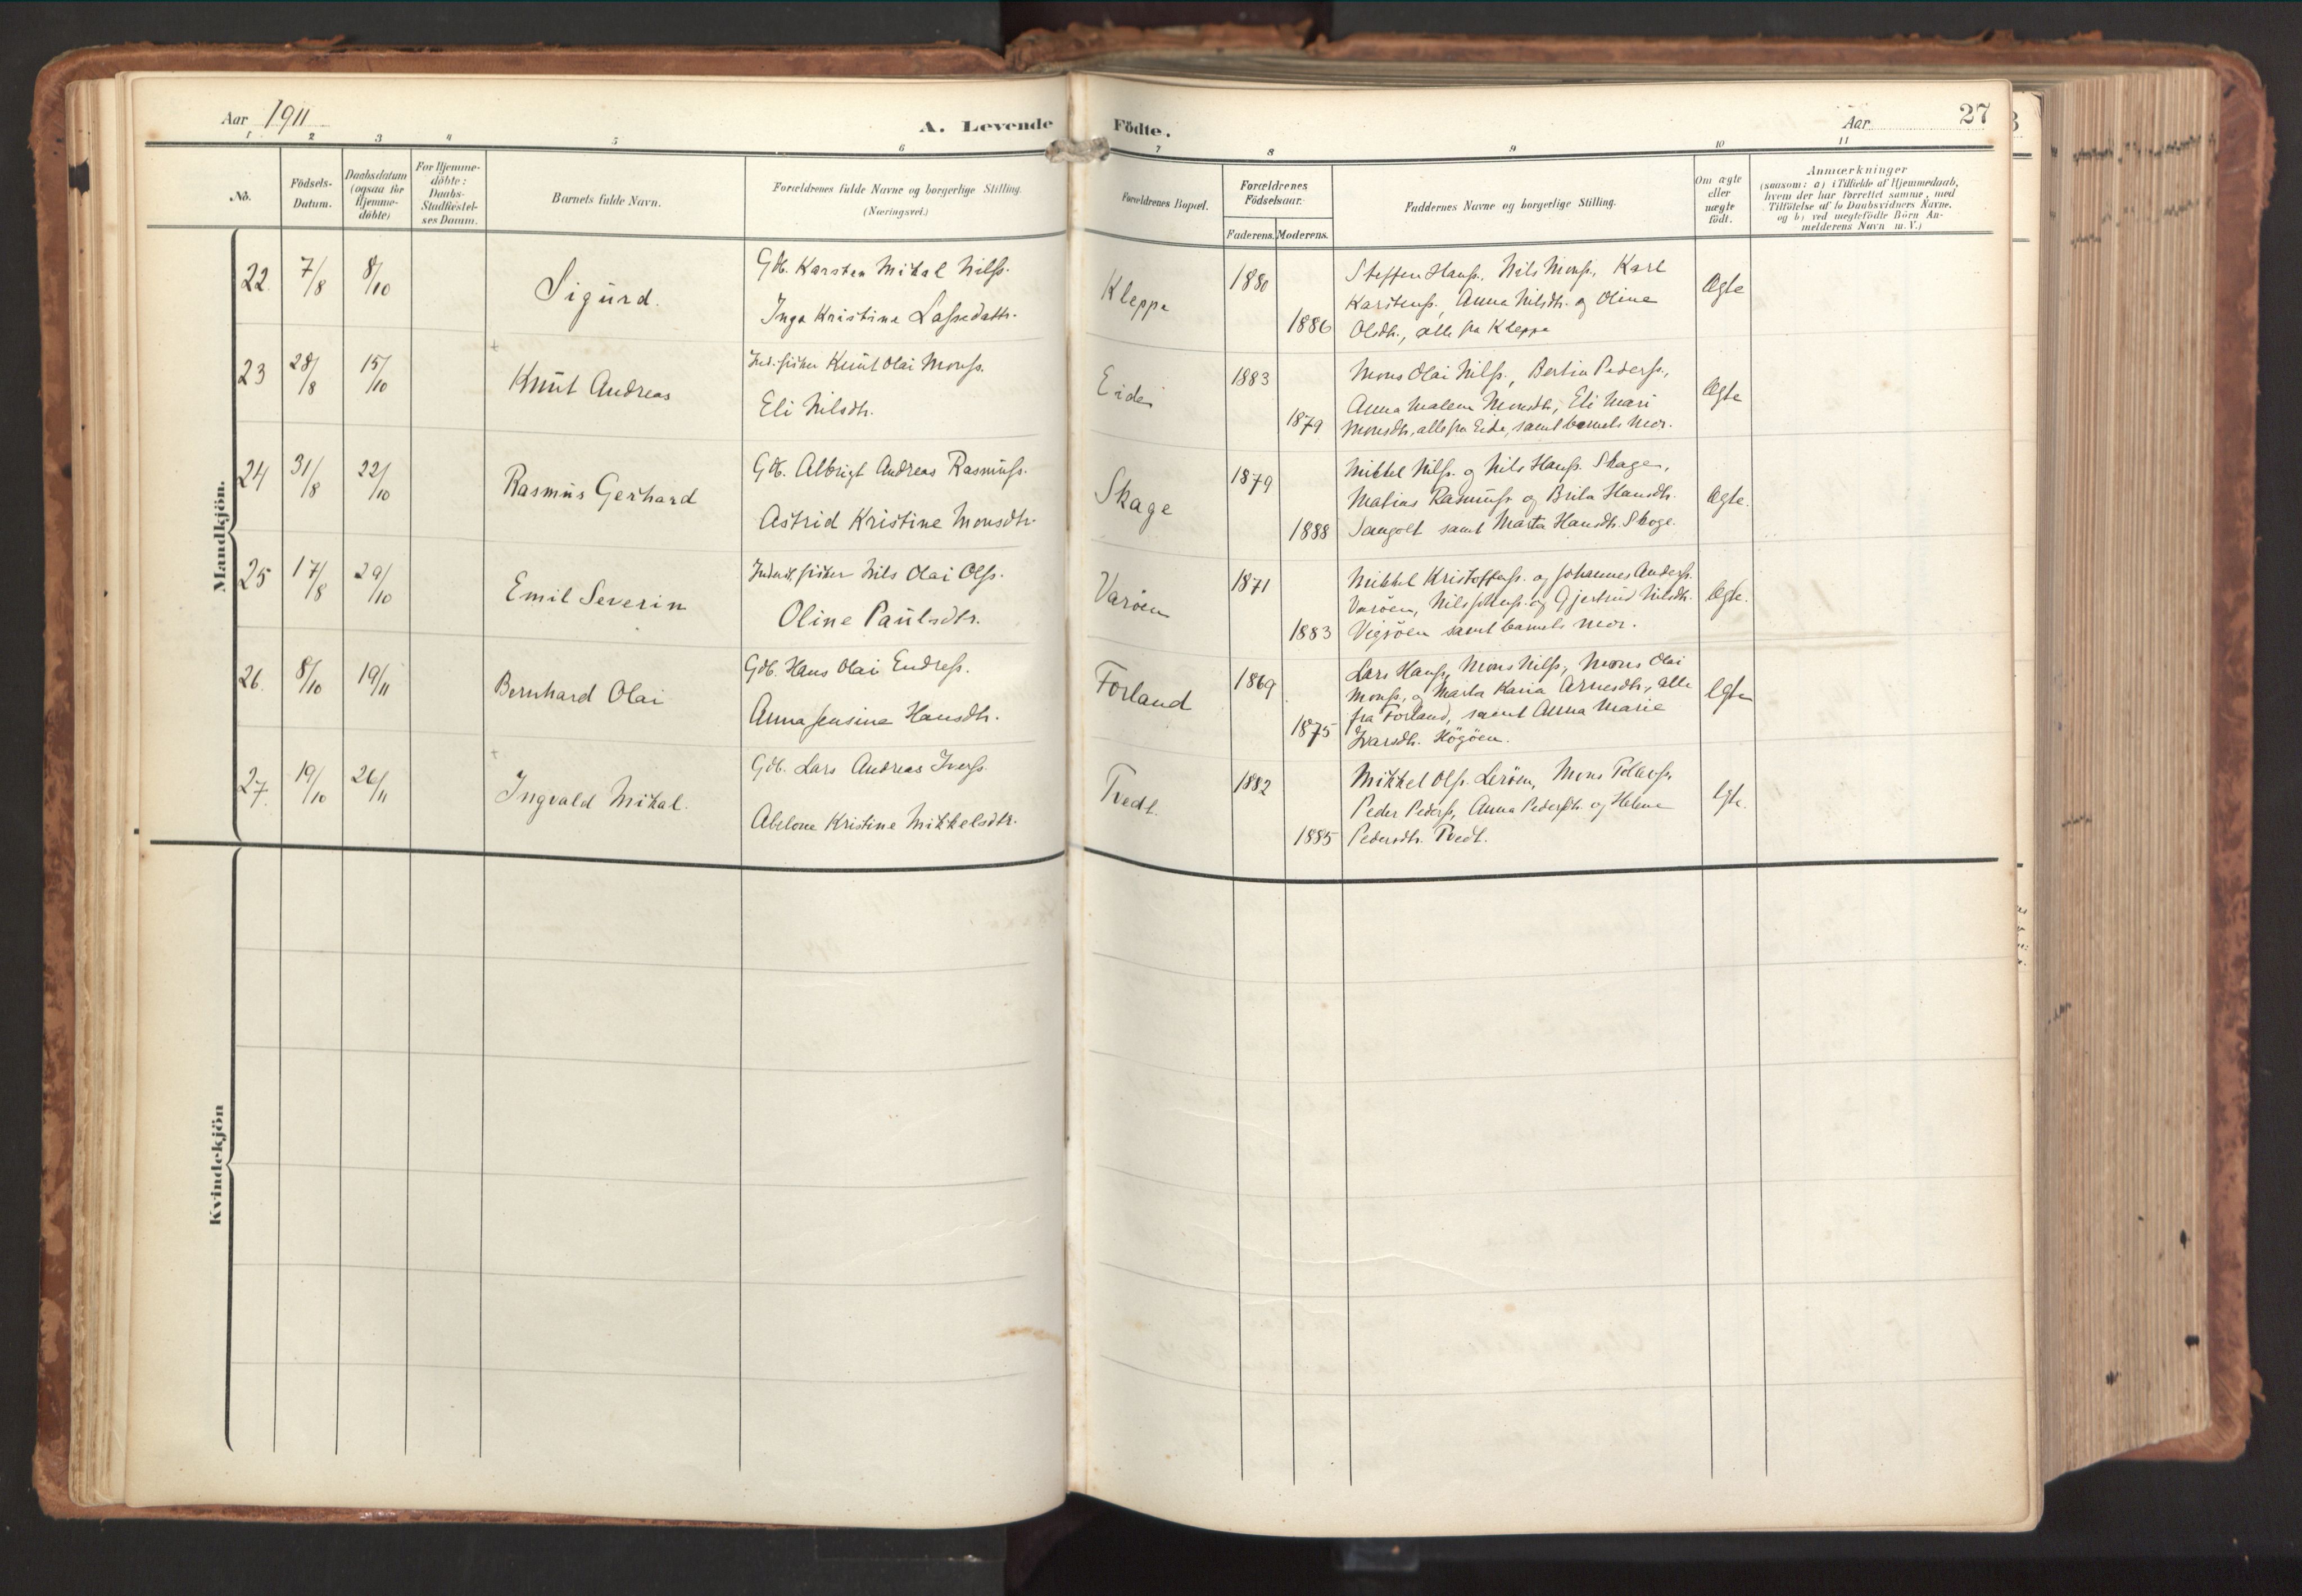 Aar 1911
A. Levende Födte.
Aar
27
1 2 3 4 5 6 7 8 9 10 11
No.
Födsels-
Datum.
Daabsdatum
(ogsaa for
Hjemme-
döbte)
For Hjemme-
döbte:
Daabs-
Stadfæstel-
ses Datum.
Barnets fulde Navn.
Forældrenes fulde Navne og borgerlige Stilling.
(Næringsvei.)
Forældrenes Bopæl.
Forældrenes
Födselsaar.
Faderens. Moderens.
Faddernes Navne og borgerlige Stilling.
Om ægte
eller
uægte
födt.
Anmærkninger
(saasom: a) i Tilfælde af Hjemmedaab,
hvem der har forrettet samme, med
Tilföielse af to Daabsvidners Navne,
og b) ved uægtefödte Börn An-
melderens Navn m.V.)
Mandkjön.
22. 7/8 8/10 Sigurd.
Gdb. Karsten Mikal Nilss.
Inga Kristine Lassedattr.
Kleppe 1880
1886
Steffen Hanss., Nils Monss., Karl
Karstenss., Anna Nilsdtr. og Oline
Olsdtr., alle fra Kleppe
Ægte
23 28/8 15/10 Knut Andreas
Ind. fisker Knut Olai Monss.
Eli Nilsdtr.
Eide 1883
1879
Mons Olai Nilss., Bertin Pederss.,
Anna Malene Monsdtr., Eli Mari
Monsdtr., alle fra Eide, samt barnets mor.
Ægte
24 31/8 22/10 Rasmus Gerhard
Gdb. Albrigt Andreas Rasmuss.
Astrid Kristine Monsdtr.
Skage 1879
1888
Mikkel Nilss. og Nils Hanss. Skage,
Matias Rasmuss. og Brita Hansdtr.
Sangolt samt Marta Hansdtr. Skoge.
Ægte.
25 17/8 29/10 Emil Severin
Inderst. fisker Nils Olai Olss.
Oline Paulsdtr.
Varöen 1871
1883
Mikkel Kristofferss. og Johannes Anderss.
Varöen, Nils Johanss. og Gjertrud Nilsdtr.
Vigsöen samt barnets mor.
Ægte.
26. 8/10 19/11 Bernhard Olai
Gdb. Hans Olai Endress.
Anna Jensine Hansdtr.
Forland 1869
1875
Lars Hanss., Mons Nilss., Mons Olai
Monss., og Marta Karia Arnesdtr., alle
fra Forland, samt Anna Marie
Ivarsdtr. Högöen.
Ægte
27. 19/10 26/11 Ingvald Mikal.
Gdb. Lars Andreas Iverss.
Abelone Kristine Mikkelsdtr.
Tvedt. 1882
1885
Mikkel Olss. Leröen, Mons Tollevss.
Peder Pederss., Anna Pedersdtr. og Helene
Pedersdtr. Tvedt.
Ægte.
Kvindekjön